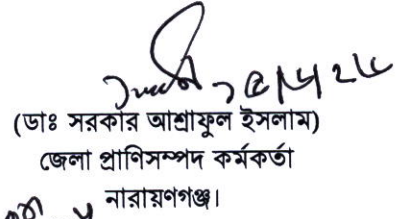 (ডাঃ সরকার আশ্রাফুল ইসলাম)
জেলা প্রাণিসম্পদ কর্মকর্তা
নারায়ণগঞ্জ।